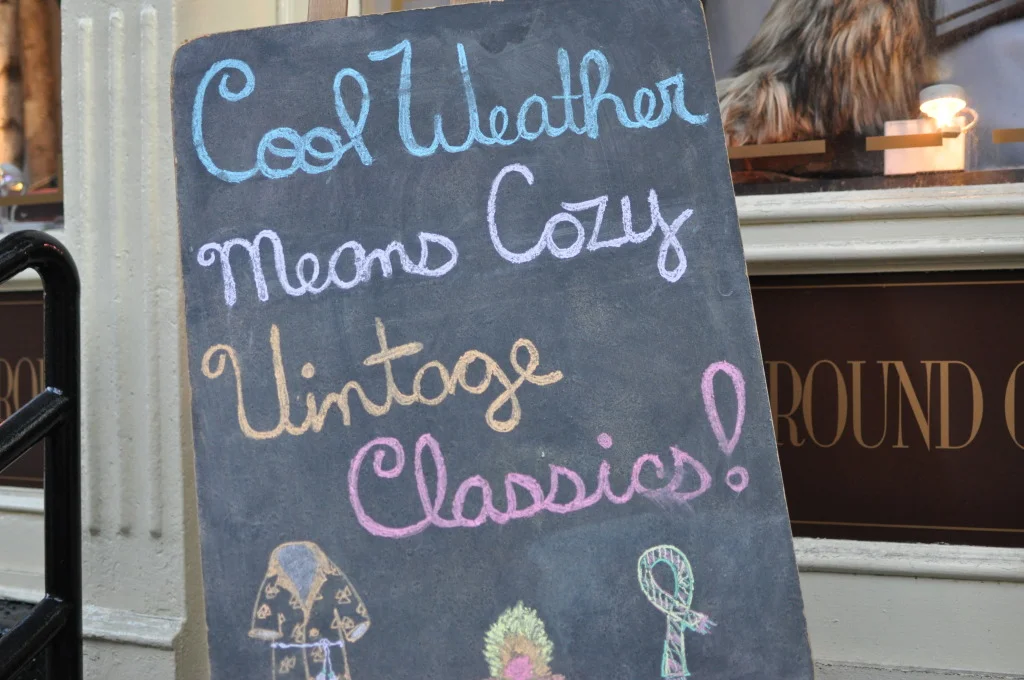 Cool Weather
Means Cozy
Vintage
Classics!
ROUND